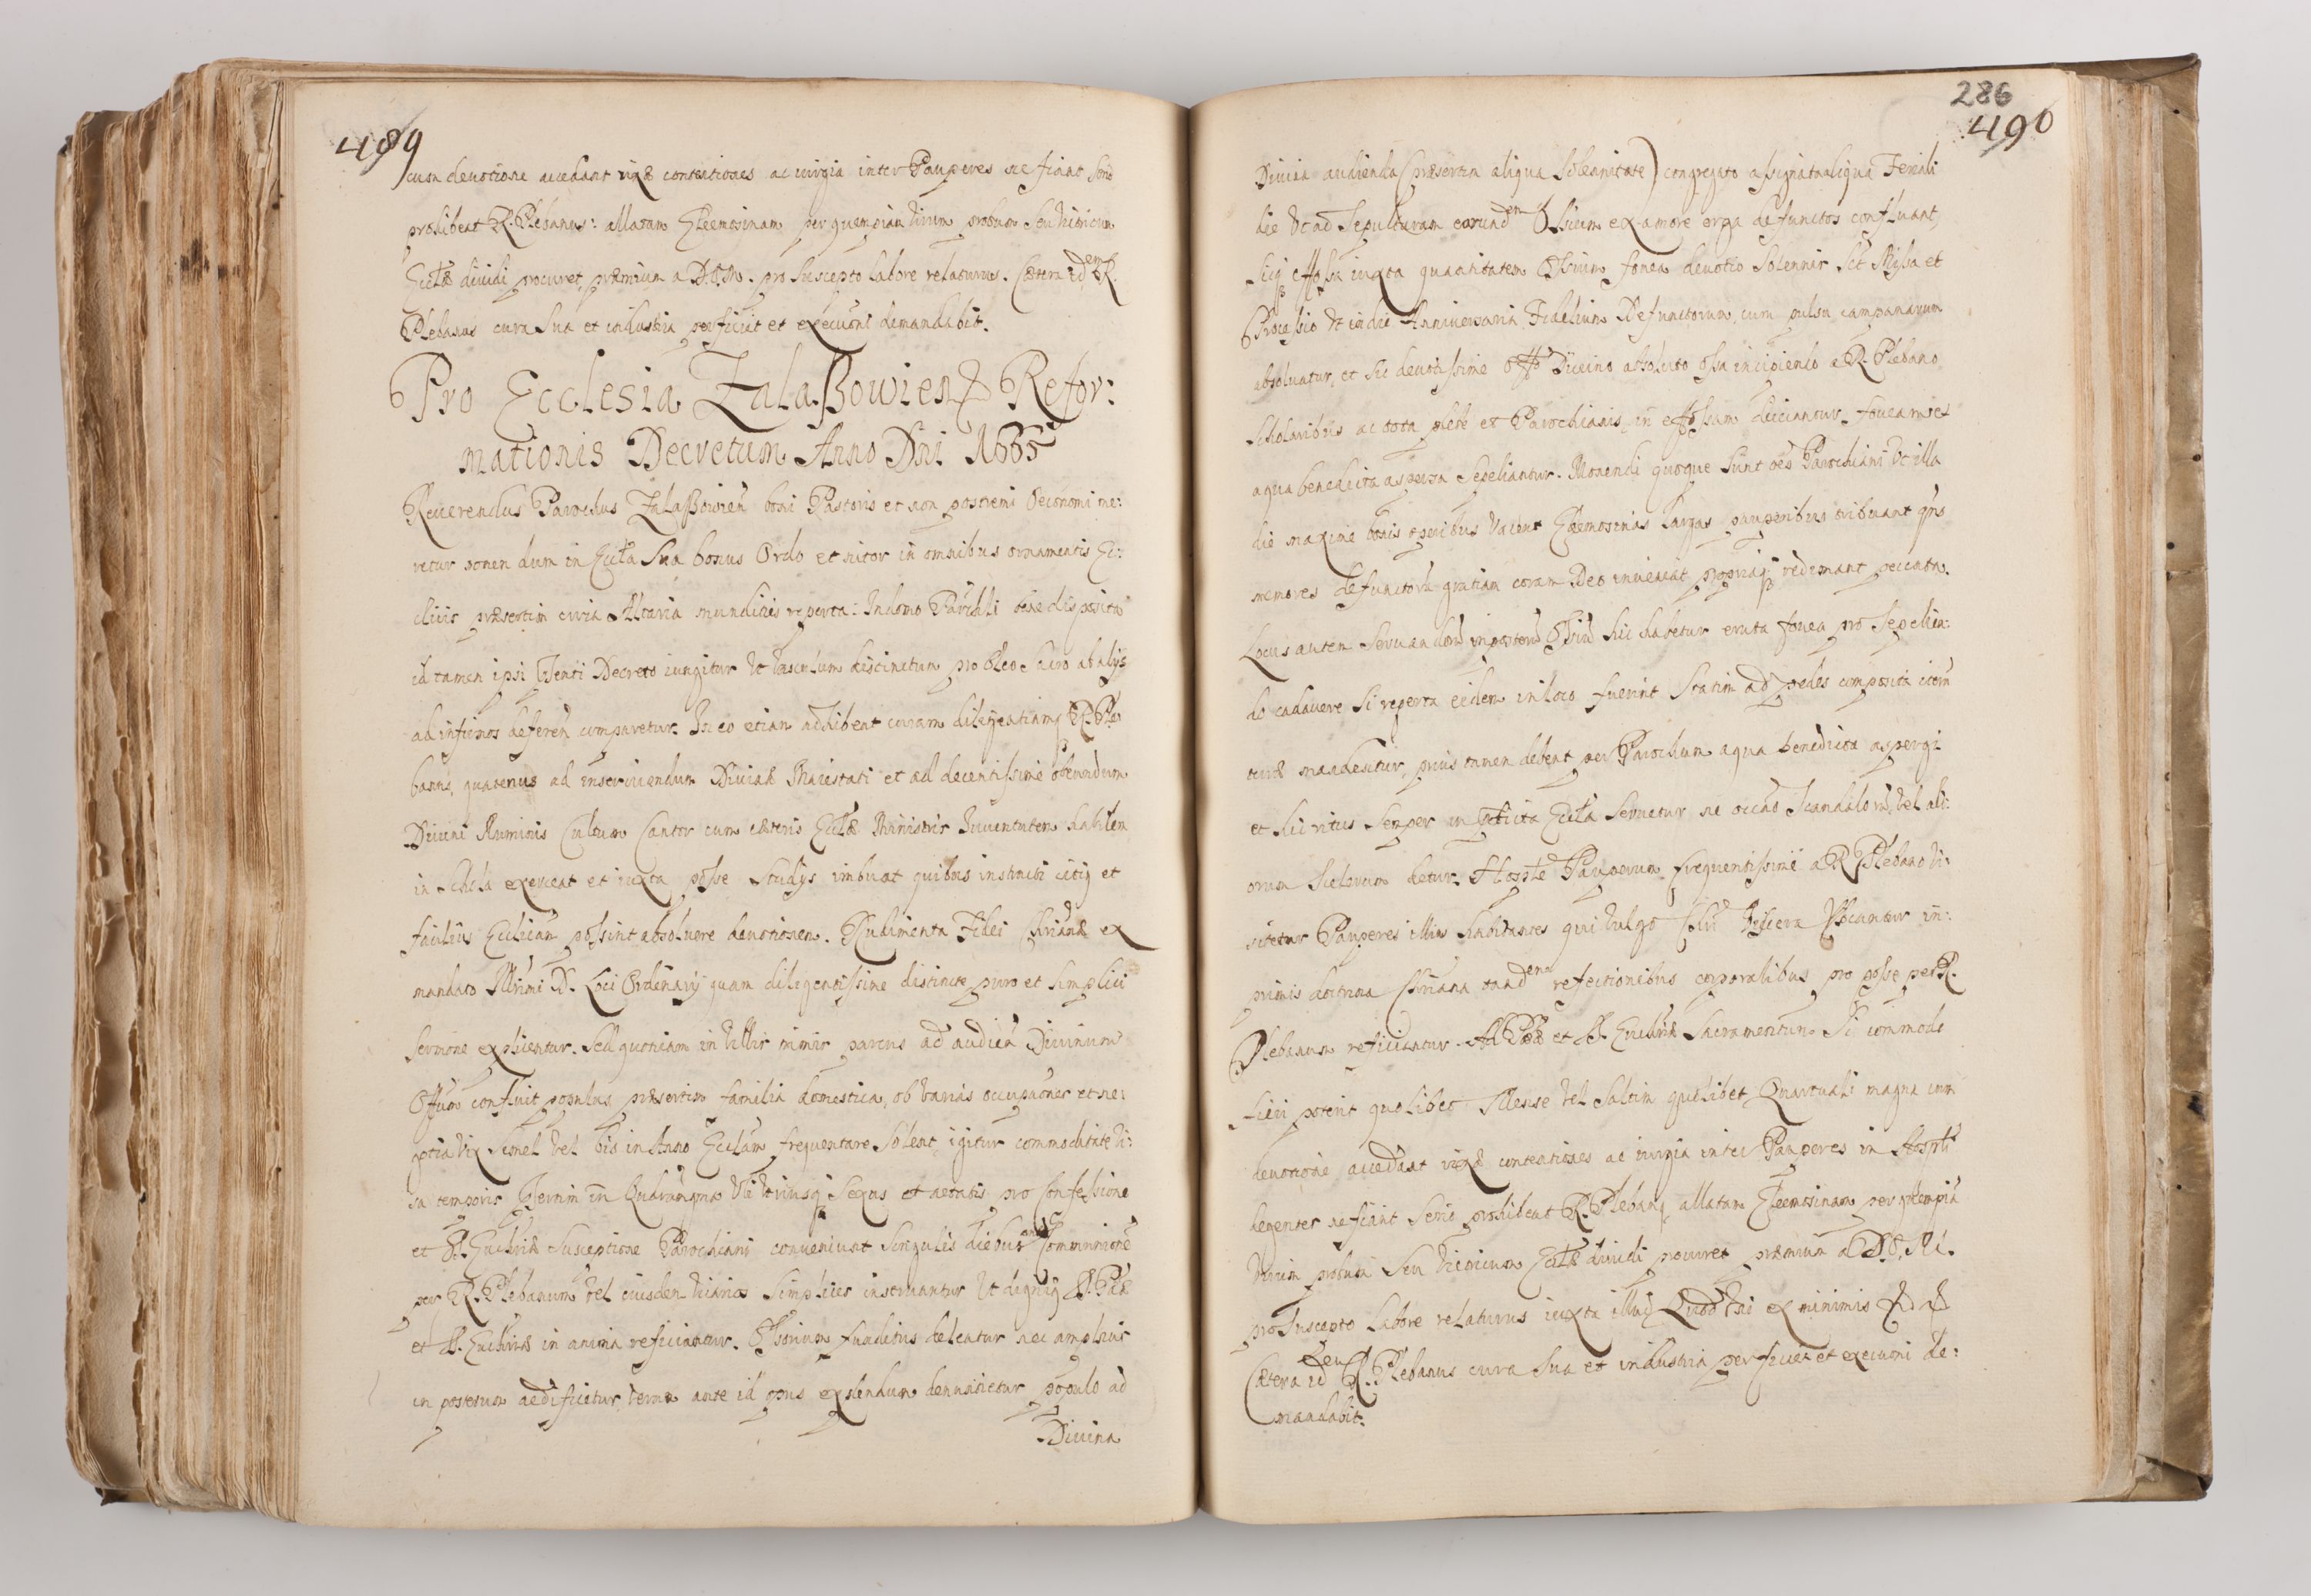 489
cum deuotione accedant rixæ contentiones ac iurgia inter Pauperes ne fiant serio
prohibeat R. Plebanus: allatam Eleemosinam per quempiam virum probum seu vitricum
Ecclæ diuidi procuret, præmium a D.O.M. pro suscepto labore relaturus. Cætera idem R.
Plebanus cura sua et industria perficiet et execuõni demandabit.
Pro Ecclesia Zalaßowien Refor:
mationis Decretum Anno Dni 1665
Reuerendus Parochus Zalaßowień boni Pastoris et non postremi Oeconomi me:
retur nomen dum in Eccła sua bonus Ordo et nitor in omnibus ornamentis Ec:
cliis præsertim circa Altaria mundities reperta: In domo Parchli bene disposita
id tamen ipsi Psenti Decreto iungitur vt vasculum distinctum pro Oleo sacro ab alijs
ad infirmos deferen comparetur. In eo etiam adhibeat curam diligentiamq R. Ple
banus, quatenus ad inseruiendum Diuinæ Maiestati et ad decentissime obeundum
Diuini Numinis Cultum Cantor cum cæteris Ecclæ Ministris Iuuentutem habilem
in Schola exerceat et iuxta posse studijs imbuat quibus instructi citiq et
facilius Ecclicam possint absoluere deuotionem. Rudimenta Fidei Chrianæ ex
mandato Illrmi D. Loci Ordinarij quam diligentissime distincte puro et simplici
sermone explicentur. Sed quoniam in Villis nimis parcus ad audien Diuinum
Offium confluit populus præsertim familia domestica, ob varias occupaones et ne:
gotia vix semel vel bis in Anno Ecclam frequentare solent, igitur commoditate vi:
sa temporis Psertim in Quadragma vbi vtriusq Sexus et aetatis pro Confessione
et SS. Euchriæ susceptione Parochiani conueniunt singulis diebus ante Communione
per R. Plebanum vel eiusdem vicarios simplicir instruantur vt digniq SS. Pœæ
et SS. Euchriæ in anima reficiantur. Ossorium funditus deleatur nec amplius
in posterum aedificetur, verum ante id opus explendum denuncietur populo ad
Diuina
286
490
Diuina audienda (præsertim aliqua solennitate) congregato assignata aliqua Feriali
die vt ad sepulturam eorundem Ossium ex amore erga defunctos confluant,
sicq effossa iuxta quantitatem Ossium fouea deuotio solennis sit Missa et
Processio vt in die Anniuersaria Fidelium Defunctorum cum pulsu campanarum
absoluatur, et sic deuotissime Offo Diuino absoluto ossa incipiendo a R. Plebano
Scholaribus ac tota plebe et Parochianis in effossam diuiantur foueam et
aqua benedicta aspersa sepeliantur. Monendi quoque sunt oēs Parochiani vt illa
die maxime bonis operibus vacent Eleemosinas largas pauperibus tribuant qñs
memores defunctorũ gratiam coram Deo inueniat propriaq redimant peccata.
Locus autem seruandorũ inposterũ Ossiũ hic habetur eruta fouea pro sepelien:
do cadauere si reperta eidem in loco fuerint statim ad pedes composita iterũ
terræ mandentur, prius tamen debent per Parochum aqua benedicta aspergi
et hic ritus semper in Pdicta Eccla seruetur ne occasio scandalorũ, vel ali:
orum scelerum detur. Hosple Pauperum frequentissime a R. Plebano vi:
sitetur Pauperes illius habitantes qui vulgo vocantur in:
primis doctrina Chriana tandem refectionibus corporalibus pro posse per R.
Plebanum reficiantur. Ad Pœæ et SS. Euchriæ Sacramentum si commode
fieri poterit quolibet Mense vel saltim quolibet Quartuali magna cum
deuotione accedant rixæ contentiones ac iurgia inter Pauperes in Hospli
degentes ne fiant serio prohibeat R. Plebanq allatam Eleemosinam per quempiã
virum probum seu vitricum Ecclæ diuidi procuret præmium a D.O.M.
pro suscepto labore relaturus iuxta illud Quod vni ex minimis
Cætera idem R. Plebanus cura sua et industria perficiet et execuoni de:
mandabit.